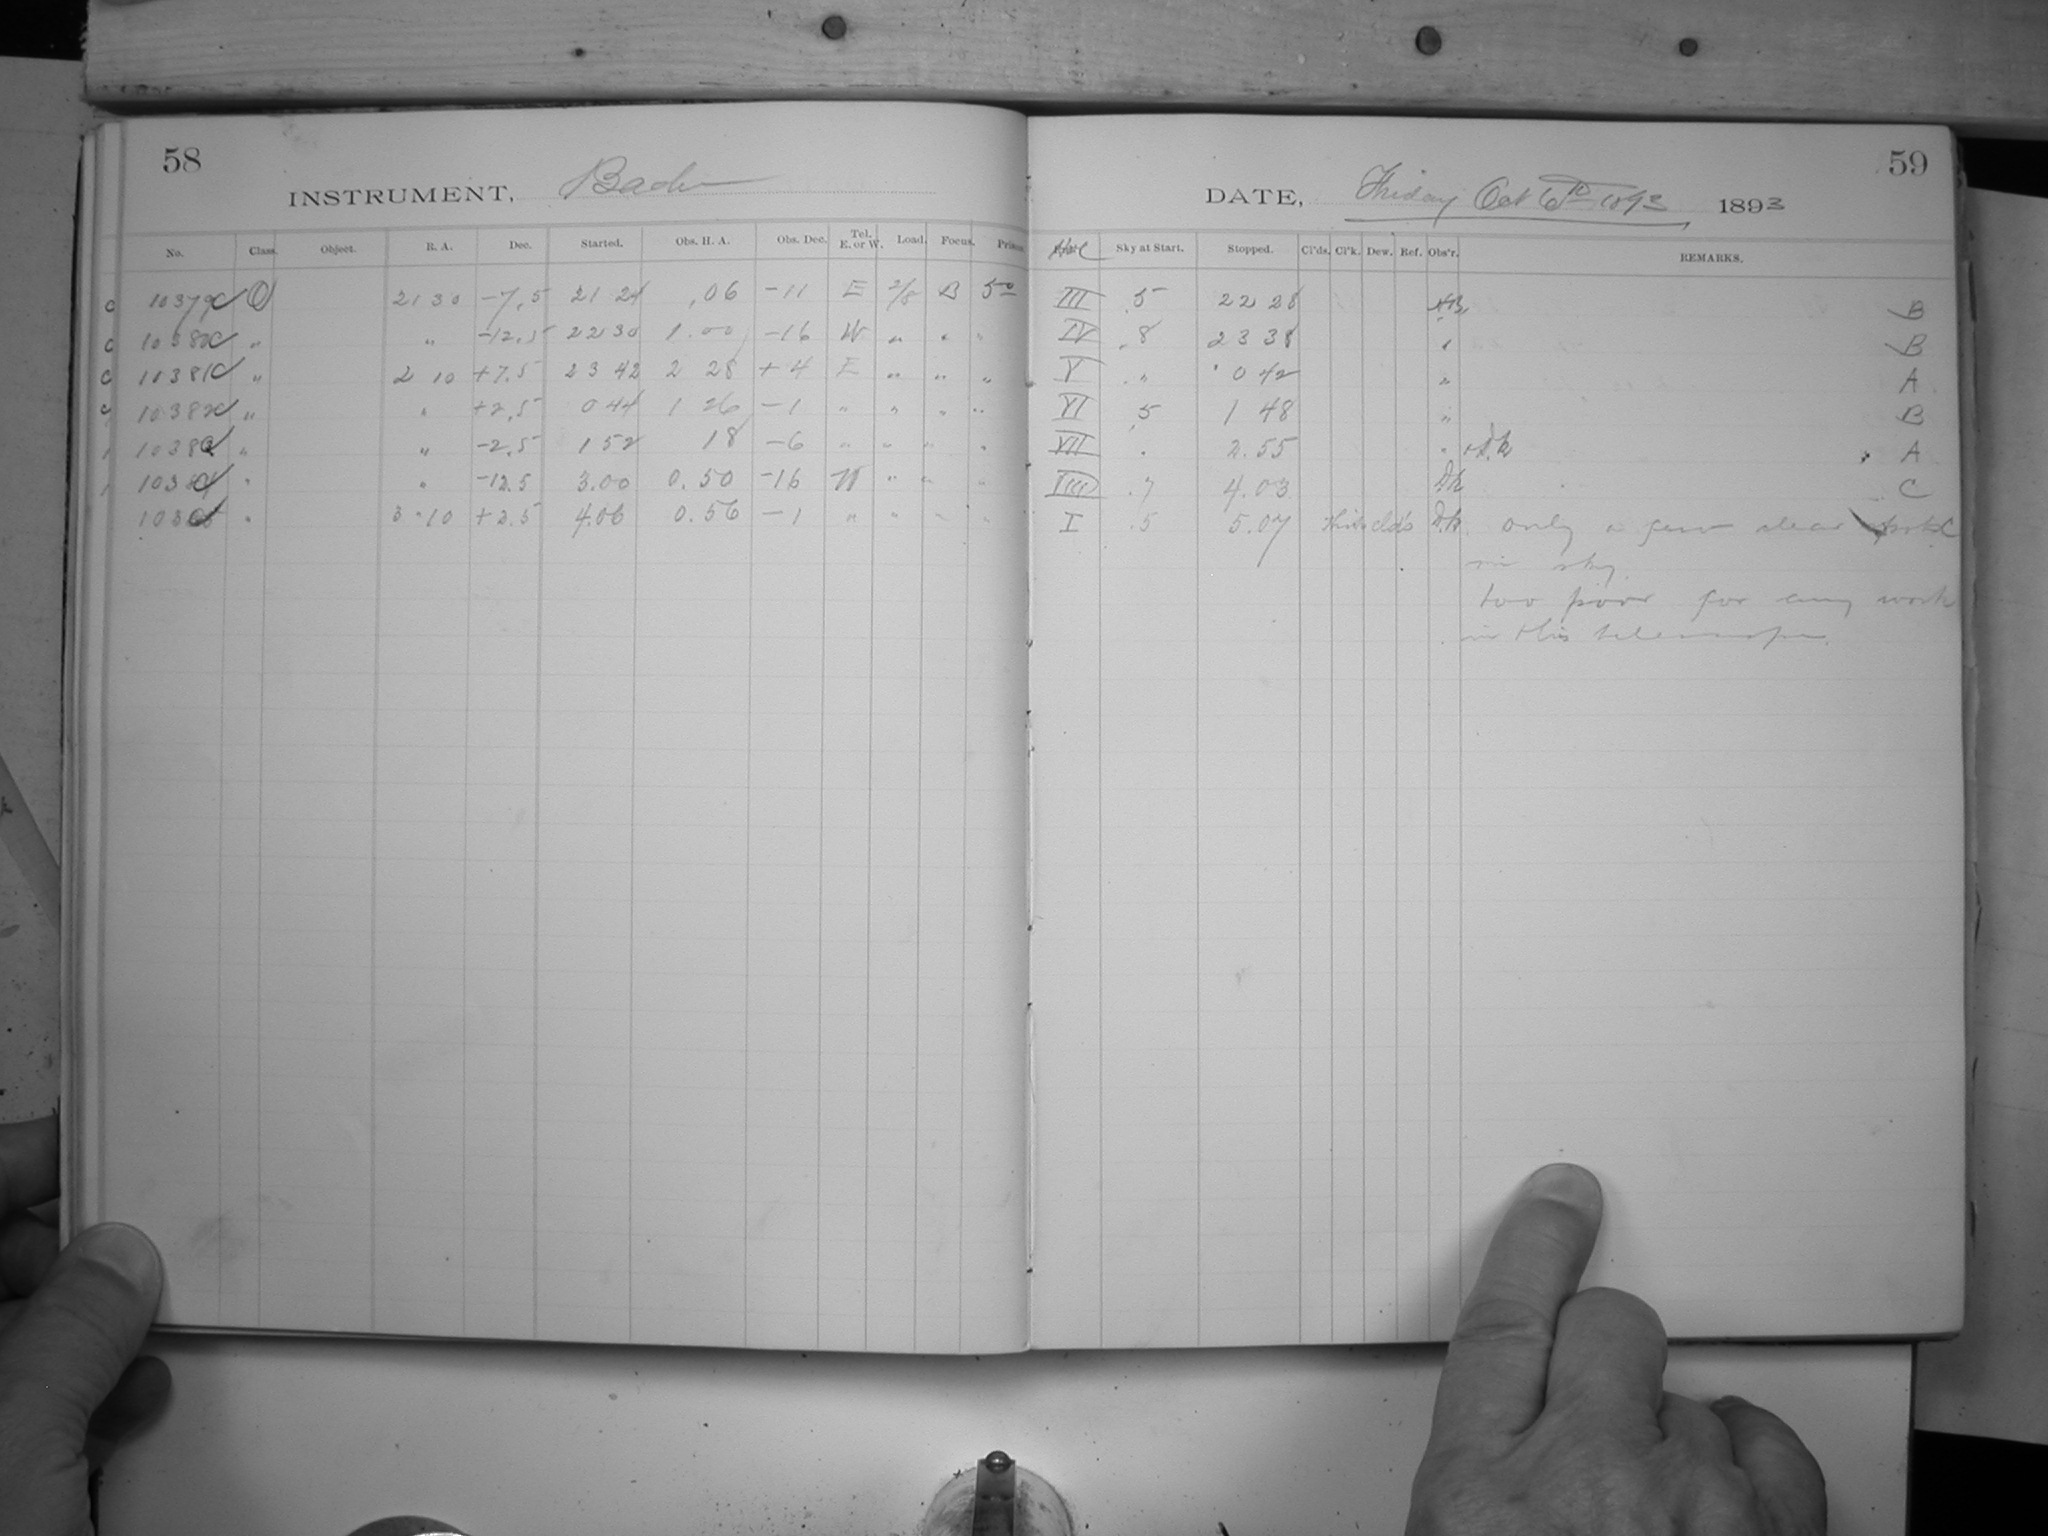 58
INSTRUMENT, Bache
No. Class. Object. R. A. Dec. Started. Obs. H. A. Obs. Dec. Tel. E. or W. Load. Focus. Prism.
c 10379 O 21 30 -7.5 21 24 .06 -11 E 2/8 B 5°
c 10380 " " -12.5 22 30 1.00 -16 W " " "
c 10381 " 2 10 +7.5 23 42 2 28 +4 E " " "
c 10382 " " +2.5 0 44 1 26 -1 " " " "
10383 " " -2.5 1 52 18 -6 " " " "
10384 " " -12.5 3.00 0.50 -16 W " " "
10385 " 3 10 +2.5 4.06 0.56 -1 " " " "
59
DATE, Friday Oct 6th 1893 1893
Sky at Start. Stopped. Cl'ds. Cl'k. Dew. Ref. Obs'r. REMARKS.
III .5 22 28 B
IV .8 23 38 " B
V " 0 42 " A
VI .5 1 48 " B
VII " 2.55 " A
VIII .7 4.03 C
I .5 5.07 only a few clear spots C
in sky.
too poor for any work
in this telescope.